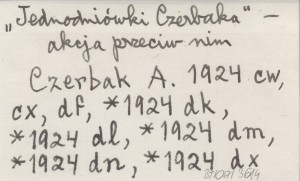 „Jednodniówki Czerbaka" –
akcja przeciw nim
Czerbak A. 1924 cw,
cx, df, *1924 dk,
*1924 dl, *1924 dm,
*1924 dn, *1924 dx